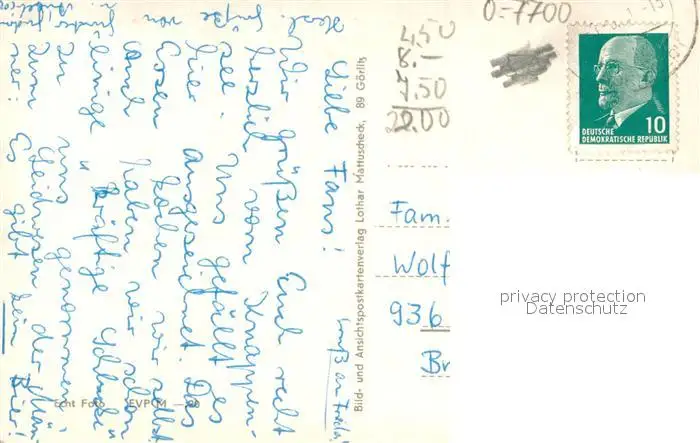 0-7700
4,50
8.-
7.50
20.00
DEUTSCHE
DEMOKRATISCHE REPUBLIK
10
Liebe Fam.!
Wir grüßen Euch recht
herzlich vom Knappen-
see. Uns gefällt es
hier ausgezeichnet. Das
Essen kochen wir selbst
auch haben wir schon
einige "kräftige Schlucke"
zu uns genommen.
zum Leidwesen der Män-
ner: Es gibt kein Bier!
Herzl. Grüße von
Gruß an
Bild- und Ansichtspostkartenverlag Lothar Mattuscheck, 89 Görlitz
Fam.
Wolf
936
Br
privacy protection
Datenschutz
Echt Foto EVPCM